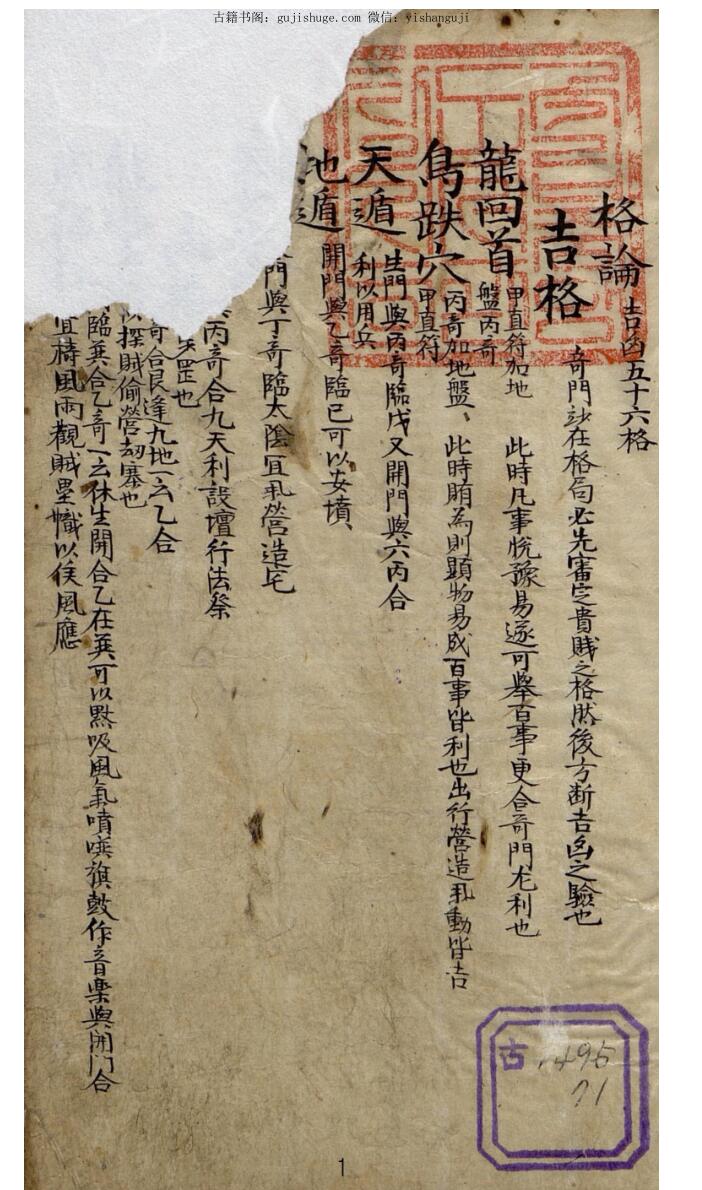 古籍书阁：gujishuge.com 微信：yishanguji
格論 吉凶五十六格
奇門玅在格局必先審定貴賤之格然後方断吉凶之驗也
吉格
龍回首 甲直符加地盤丙奇 此時凡事悅豫易遂可舉百事更合奇門尤利也
鳥跌穴 丙奇加地盤甲直符 此時所為則顕物易成百事皆利也出行營造動皆吉
天遁 生門與丙奇臨戊又開門與六丙合利以用兵
地遁 開門與乙奇臨己可以安墳
門與丁奇臨太陰宜營造宅
丙奇合九天利設壇行法祭
罡也
奇合艮逢九地一云乙合
以探賊偷營刼寨也
臨巽合乙奇一云休生開合乙在巽可以黙吸風氣噴喚旗鼓作音樂與開門合
宜禱風雨觀賊壘幟以侯風應
古 1495
71
1